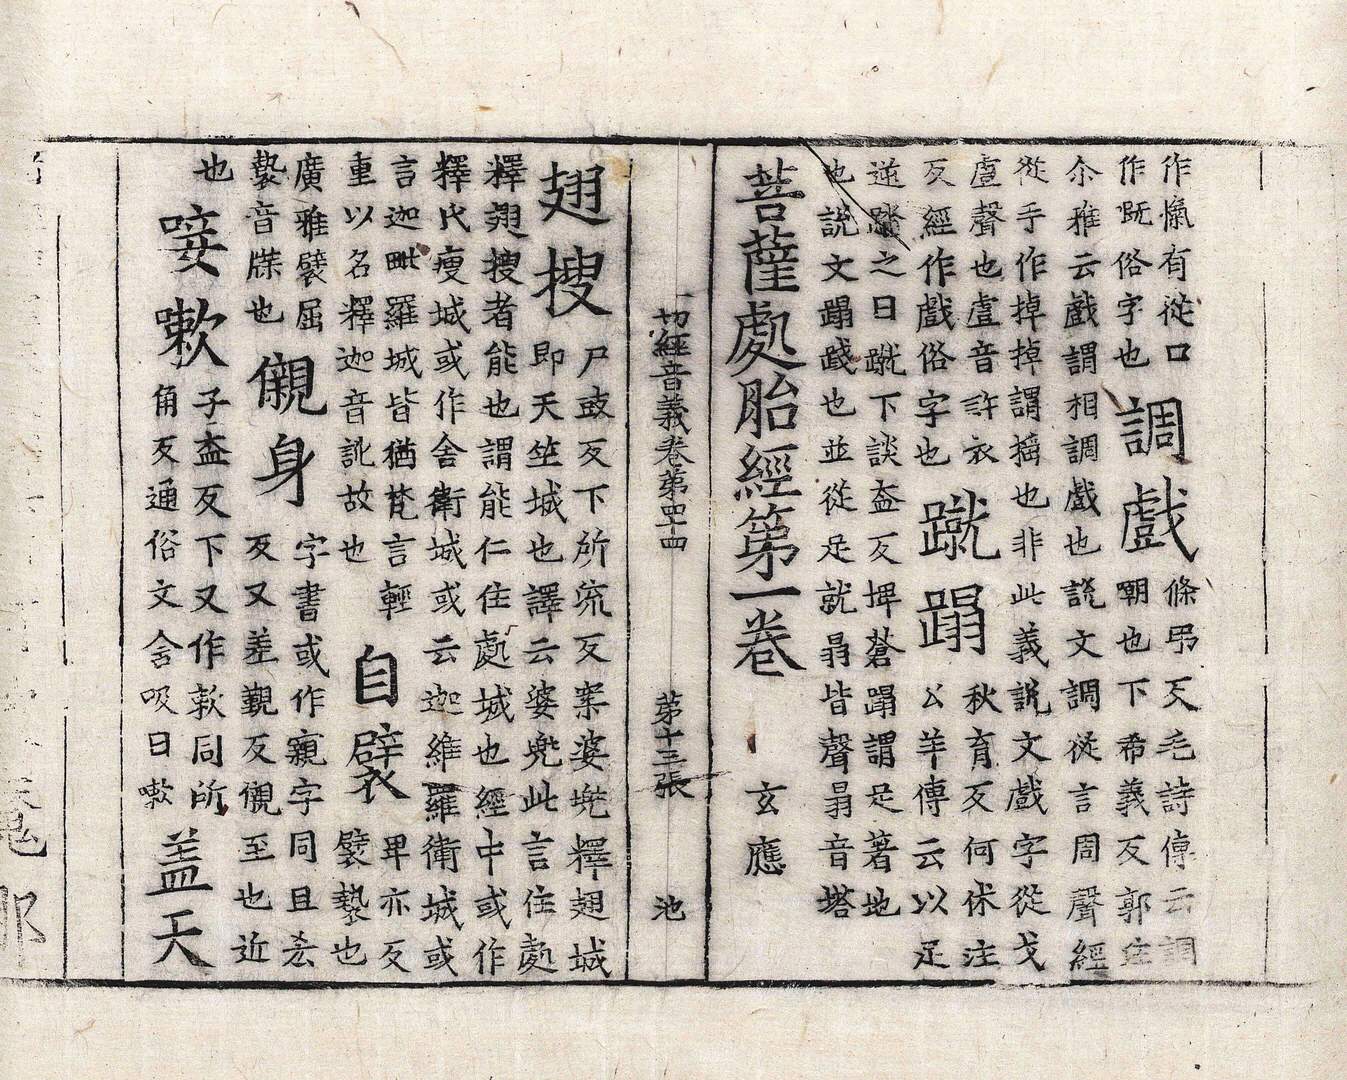 作愾有從口
作旣俗字也
調戲
條弔反毛詩傳云調
嘲也下希義反郭注
尒雅云戲謂相調戲也說文調從言周聲經
從手作掉掉謂搖也非此義說文戲字從戈
䖒聲也䖒音許衣
反經作戲俗字也
蹴蹋
秋育反何休注
公羊傳云以足
逆蹋之曰蹴下談盍反埤蒼蹋謂足著地
也說文蹋踐也並從足就𦐇皆聲𦐇音塔
菩薩處胎經第一卷 玄應
一切經音義卷第四十四 第十三張 池
翅搜
尸豉反下所流反案婆㙈釋翅城
即天竺城也譯云婆兜此言住處
釋翅搜者能也謂能仁住處城也經中或作
釋氏瘦城或作舍衞城或云迦維羅衞城或
言迦毗羅城皆猶梵言輕
重以名釋迦音訛故也
自襞
卑亦反
襞褺也
廣雅襞屈
褺音牒也
儭身
字書或作寴字同且吝
反又差覲反儭至也近
也
唼嗽
子盍反下又作欶同所
角反通俗文含吸曰嗽
蓋天